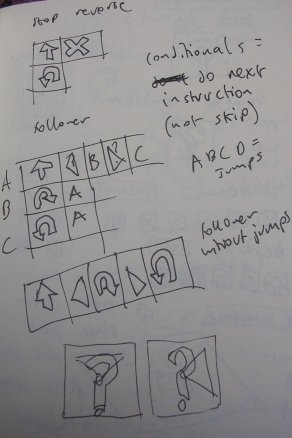 stop reverse
conditionals =
do next
instruction
(not skip)
A B C D =
jumps
follower
A B C
B A
C A
follower
without jumps
? ?